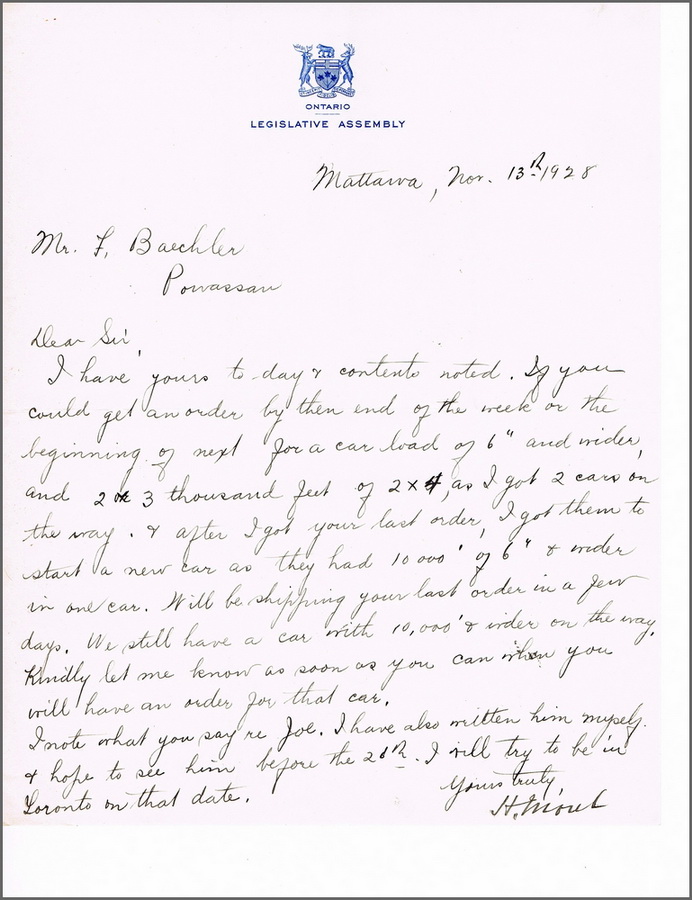 ONTARIO
LEGISLATIVE ASSEMBLY
Mattawa, Nov. 13th 1928
Mr. F. Baechler
Powassan
Dear Sir
I have yours to day & contents noted. If you
could get an order by then end of the week or the
beginning of next for a car load of 6" and wider,
and 2 or 3 thousand feet of 2x4, as I got 2 cars on
the way. & after I got your last order, I got them to
start a new car as they had 10 000' of 6" & wider
in one car. Will be shipping your last order in a few
days. We still have a car with 10,000' & wider on the way.
Kindly let me know as soon as you can when you
will have an order for that car.
I note what you say re Joe. I have also written him myself.
& hope to see him before the 26th. I will try to be in
Toronto on that date.
Yours truly,
H. Morel